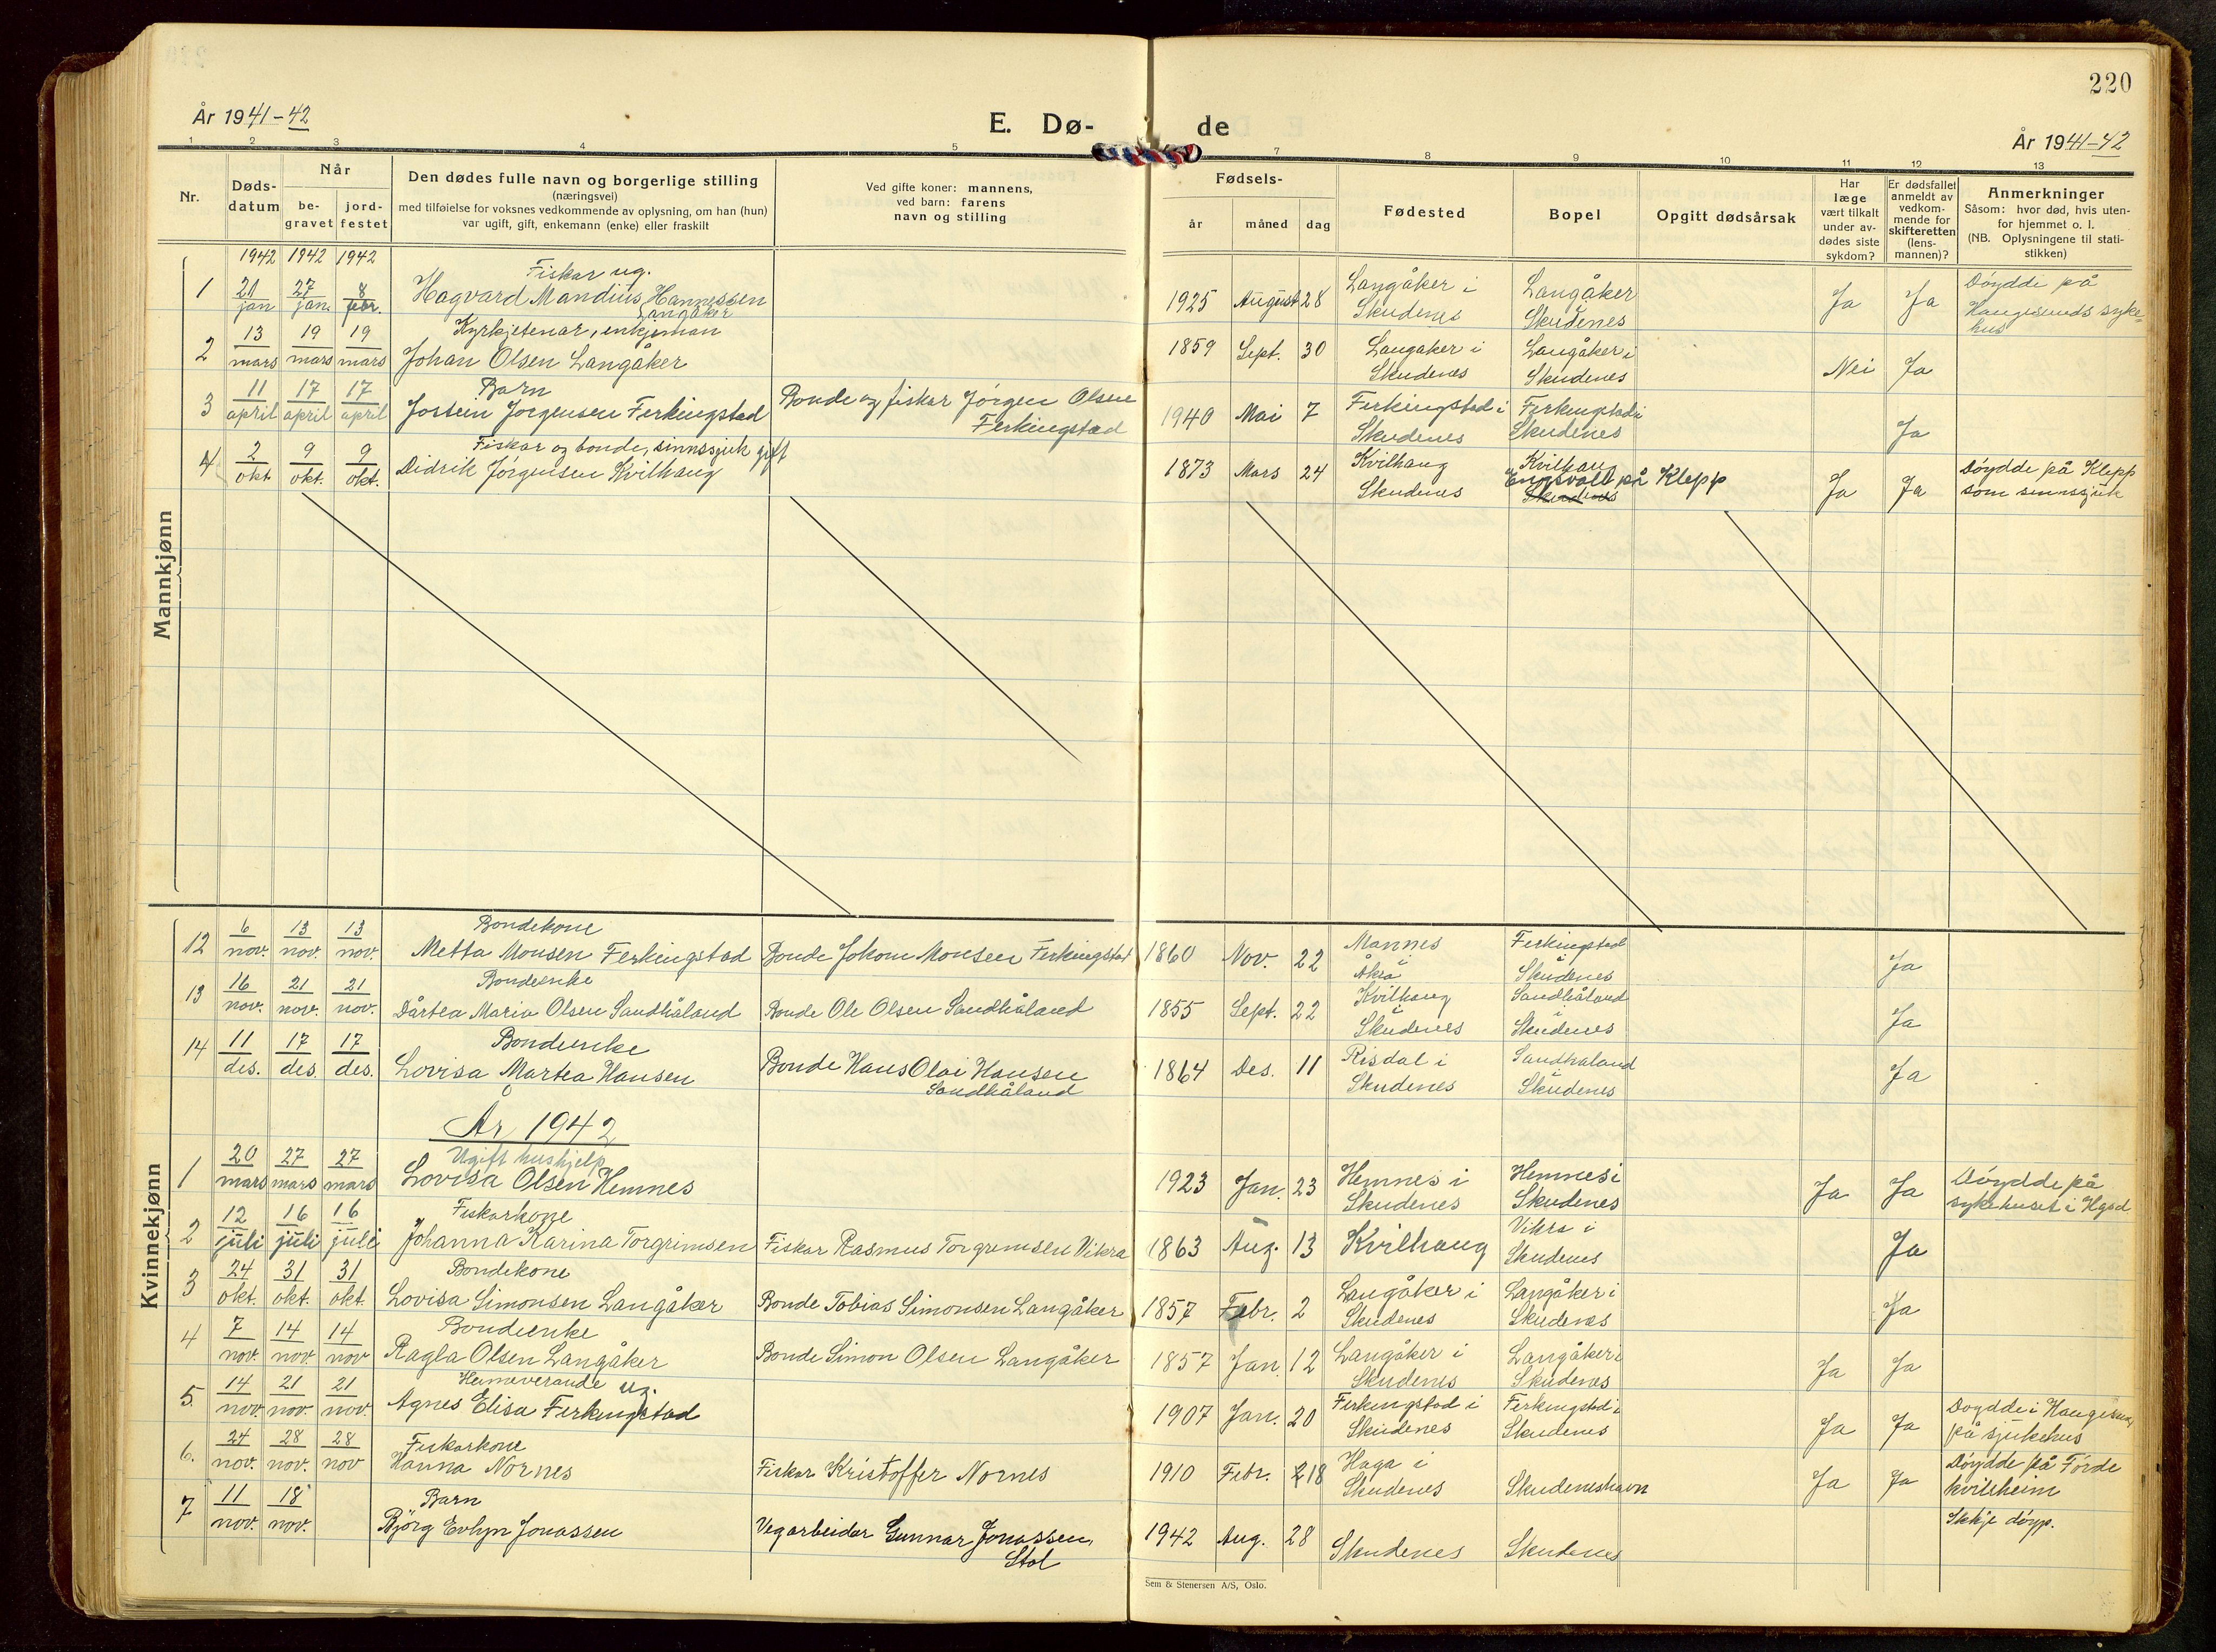 220
År 1941-42
E. Dø-
de
År 1941-42
1 2 3 4 5 7 8 9 10 11 12 13
Nr.
Døds-
datum
Når
be-
gravet
jord-
festet
Den dødes fulle navn og borgerlige stilling
(næringsvei)
med tilføielse for voksnes vedkommende av oplysning, om han (hun)
var ugift, gift, enkemann (enke) eller fraskilt
Ved gifte koner: mannens,
ved barn: farens
navn og stilling
Fødsels-
år måned dag
Fødested
Bopel
Opgitt dødsårsak
Har
læge
vært tilkalt
under av-
dødes siste
sykdom?
Er dødsfallet
anmeldt av
vedkom-
mende for
skifteretten
(lens-
mannen)?
Anmerkninger
Såsom: hvor død, hvis uten-
for hjemmet o. l.
(NB. Oplysningene til stati-
stikken)
Mannkjønn
1942 1942 1942
Fiskar ug.
1 21 jan 27 jan. 8 febr. Hagvard Mandius Hannessen
Langåker
1925 August 28 Langåker i Skudenes Langåker Skudenes Ja Ja Døydde på
Haugesunds syke-
hus
Kyrkjetenar, enkjeman
2 13 mars 19 mars 19 mars Johan Olsen Langåker 1859 Sept. 30 Langåker i Skudenes Langåker i Skudenes Nei Ja
Barn
3 11 april 17 april 17 april Jostein Jørgensen Ferkingstad Bonde og fiskar Jörgen Olsen
Ferkingstad
1940 Mai 7 Ferkingstad i Skudenes Ferkingstad i Skudenes Ja
Fiskar og bonde, sinnssjuk gift
4 2 okt 9 okt. 9 okt. Didrik Jørgensen Kvilhaug 1873 Mars 24 Kvilhaug Skudenes Kvilhaug
Engsvoll på Klepp
Skudenes
Ja Ja Döydde på Klepp
som sinnssjuk
Kvinnekjønn
Bondekone
12 6 nov. 13 nov. 13 nov. Metta Monsen Ferkingstad Bonde Jokom Monsen Ferkingstad 1860 Nov. 22 Mannes i Åkra Ferkingstad i Skudenes Ja
Bondeenke
13 16 nov. 21 nov. 21 nov. Dårtea Maria Olsen Sandhåland Bonde Ole Olsen Sandhåland 1855 Sept. 22 Kvilhaug i Skudenes Sandhåland i Skudenes Ja
Bondeenke
14 11 des. 17 des. 17 des. Lovisa Martea Hansen Bonde Hans Olai Hansen
Sandhåland
1864 Des. 11 Risdal i Skudenes Sandhåland i Skudenes Ja
År 1942
Ugift hushjelp
1 20 mars 27 mars 27 mars Lovisa Olsen Hemnes 1923 Jan. 23 Hemnes i Skudenes Hemnes i Skudenes Ja Ja Döydde på
sykehuset i Hgsd
Fiskarkone
2 12 juli 16 juli 16 juli Johanna Karina Torgrimsen Fiskar Rasmus Torgrimsen Vikra 1863 Aug. 13 Kvilhaug Vikra i Skudenes Ja
Bondekone
3 24 okt. 31 okt. 31 okt. Lovisa Simonsen Langåker Bonde Tobias Simonsen Langåker 1857 Febr. 2 Langåker i Skudenes Langåker i Skudenes Ja
Bondeenke
4 7 nov. 14 nov. 14 nov Ragla Olsen Langåker Bonde Simon Olsen Langåker 1857 Jan. 12 Langåker i Skudenes Langåker i Skudenes Ja Ja
Heimeverande ug.
5. 14 nov. 21 nov. 21 nov. Agnes Elisa Ferkingstad 1907 Jan. 20 Ferkingstad i Skudenes Ferkingstad i Skudenes Ja Ja Doydde i Haugesund
på sjukehus
Fiskarkone
6. 24 nov. 28 nov. 28 nov Hanna Nornes Fiskar Kristoffer Nornes 1910 Febr. 18 Haga i Skudenes Skudeneshavn Ja Ja Döydde på Förde
kvileheim
Barn
7 11 nov. 18 nov. Bjørg Evlyn Jonassen Vegarbeidar Gunnar Jonassen,
Stol
1942 Aug. 28 Skudenes Skudenes Ikkje döyp.
Sem & Stenersen A/S, Oslo.